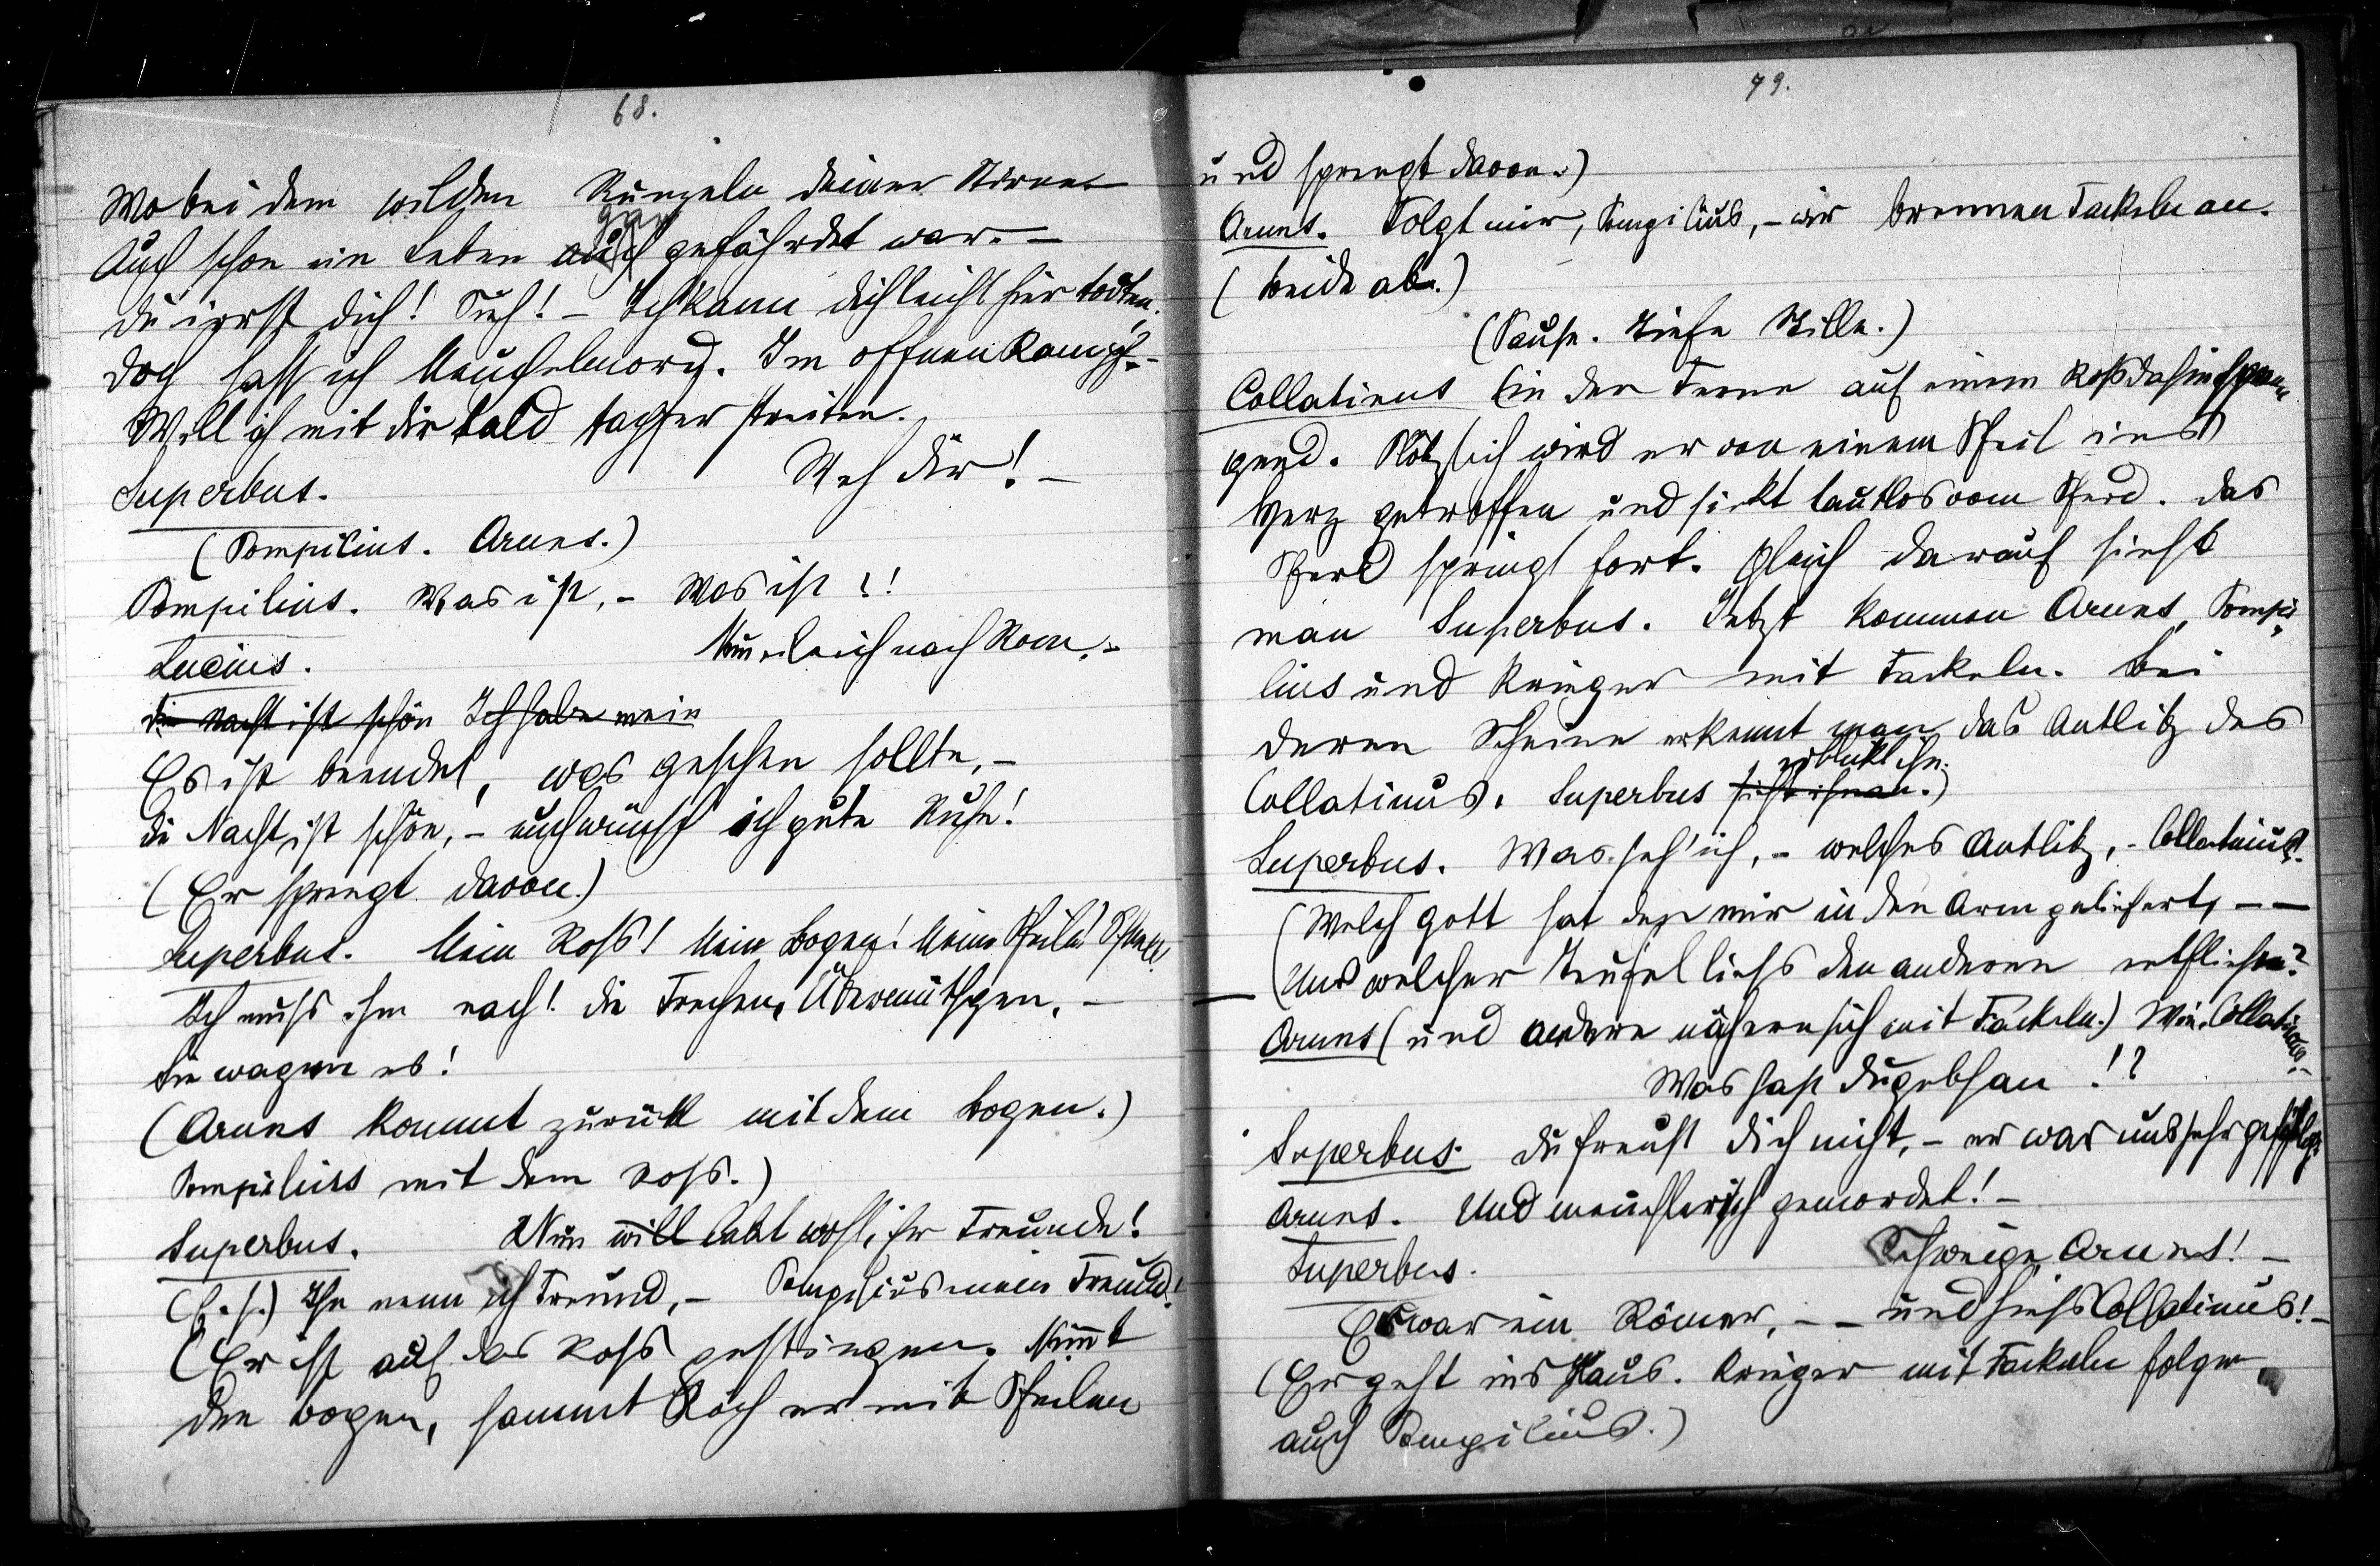 68.
Wo bei dem wilden Runzeln deiner Stirne
Auch schon ein Leben gar gefährdet war. –
Du irrst dich! Sieh! – Ich kann dich leicht hier todten.
Doch hass ich Meuchelmord. Im offnen Kampf –
Will ich mit dir bald tapfer streiten.
Superbus. Weh dir! –
(Pompilius. Aruns.)
Pompilius. Was ist, – Was ist !!
Lucius. Nun eile ich nach Rom. –
die Nacht ist schön Ich habe mein
Es ist beendet, was geschen sollte, –
die Nacht ist schön, – euch wünsch ich gute Ruhe!
(Er sprengt davon.)
Superbus. Mein Ross! Mein Bogen! Meine Pfeile! Schnell!
Ich muss ihm nach! die Frechen, Übermüthgen, –
Sie wagen es!
(Aruns kommt zurück mit dem Bogen.)
Pompilius mit dem Ross.)
Superbus. Nun will lebt wohl, ihr Freunde!
(f. s.) Ihn nenn ich Freund, – Pompilius mein Freund!
(Er ist auf das Ross gestiegen. Nimmt
den Bogen, sammt Köcher mit Pfeilen
79.
und sprengt davon.)
Aruns. Folgt mir, Pompilius, – wir brennen Fackeln an.
(beide ab.)
(Pause. Tiefe Stille.)
Collatinus (in der Ferne auf einem Ross dahinspren
gend. Plötzlich wird er von einem Pfeil ins
Herz getroffen und sinkt lautlos vom Pferd. das
Pferd springt fort. Gleich darauf sieht
man Superbus. Jetzt kommen Aruns, Pompi„
lius und Krieger mit Fackeln. Bei
deren Scheine erkennt man das Antlitz des
erblickt ihn.
Collatinus. Superbus sieht ihn an.)
Superbus. Was seh' ich, – welches Antlitz, – Collatinus.
(Welch Gott hat den mir in den Arm geliefert, – –
(Und welcher Teufel liess den anderen entfliehen?
Aruns (und andere nähern sich mit Fackeln.) Wie. Collatinus. –
Was hast du gethan !?
Superbus. du freust dich nicht, – er war uns sehr
Aruns. Und meuchlerisch gemordet! –
Superbus. Schweige Aruns! –
Es war ein Römer, – – und hiess Collatinus! –
(Er geht ins Haus. Krieger mit Fackeln folgen
auch Pompilius.)